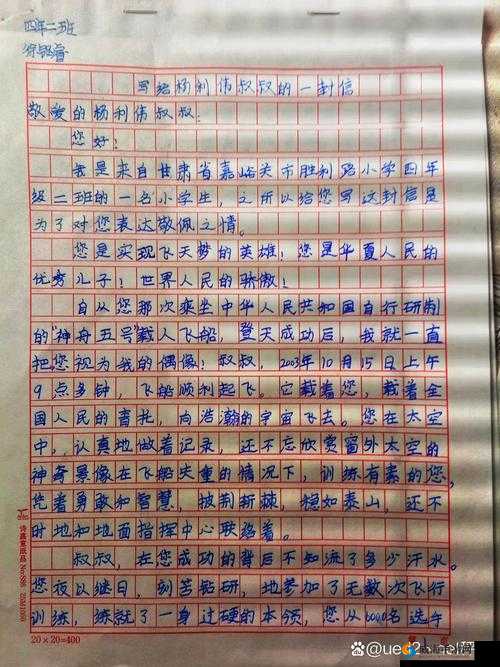 四年二班
写给杨利伟叔叔的一封信
敬爱的杨利伟叔叔:
您好!
我是来自甘肃省嘉峪关市胜利路小学四年
级二班的一名小学生,之所以给您写这封信是
为了对您表达敬佩之情。
您是实现飞天梦的英雄!您是华夏人民的
优秀儿子!世界人民的骄傲!
自从您那次乘坐中华人民共和国自行研制
的"神舟五号"载人飞船,登天成功后,我就一直
把您视为我的偶像!叔叔,2003年10月15日上午
9点多钟,飞船顺利起飞。它载着您,载着全
国人民的重托,向浩瀚的宇宙飞去。您在太空
中,认真地做着记录,还不忘欣赏窗外太空的
神奇景像在飞船失重的情况下,训练有素的您,
凭着勇敢和智慧,披荆斩棘,稳如泰山,还不
时地和地面指挥中心联络着。
叔叔,在您成功的背后不知流了多少汗水。
您夜以继日,刻苦钻研,地参加了无数次飞行
训练,练就了一身过硬的本领,您从6000名选手
20×20=400